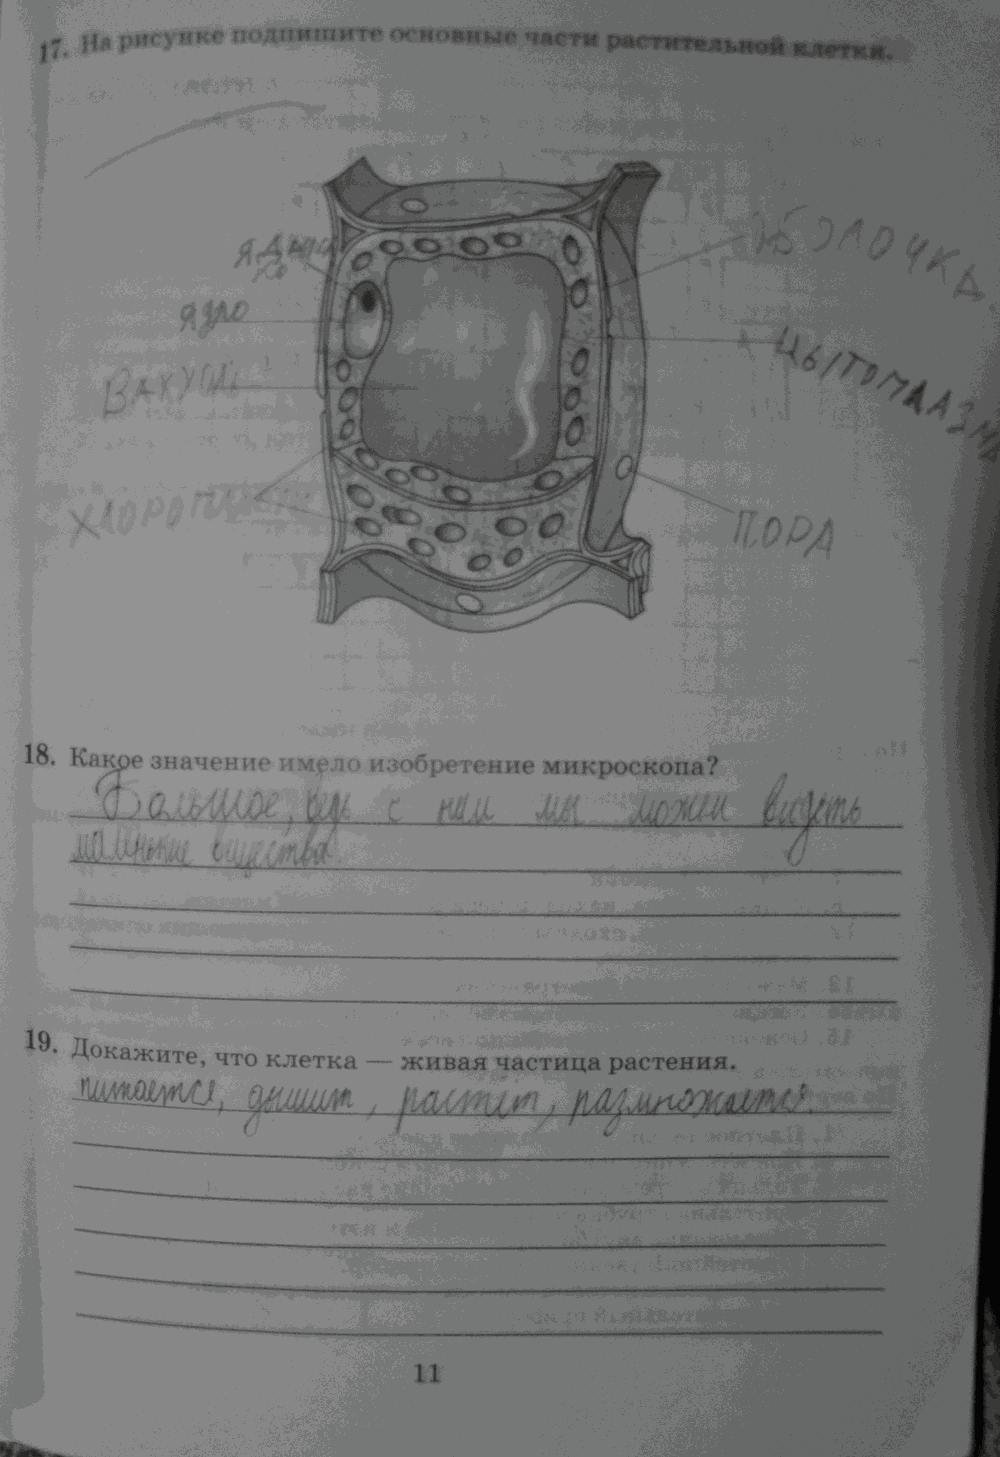 17. На рисунке подпишите основные части растительной клетки.
ОБОЛОЧКА
ЯДРО
ВАКУОЛЬ
ПОРА
18. Какое значение имело изобретение микроскопа?
Большое, ведь с ним мы можем видеть
маленькие вещества.
19. Докажите, что клетка — живая частица растения.
питается, дышит, растёт, размножается.
11